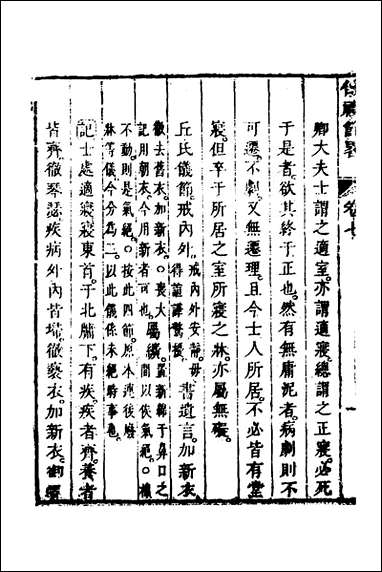 儀禮節畧 卷七
卿大夫士謂之適室。亦謂適寢。總謂之正寢。必死
于是者。欲其終于正也。然有無庸泥者。病劇則不
可遷。不劇。又無遷理。且今士人所居。不必皆有堂
寢。但卒于所居之室所寢之牀。亦屬無礙。
丘氏儀節。戒內外。戒內外安靜。毋得諠譁驚擾。書遺言。加新衣
徹去舊衣。加新衣。○喪大記用朝衣。今用新者可也。屬纊。置新綿于鼻口之間以俟氣絕。○
不動則是氣絕。○按此四節。原本連後廢牀等儀。今分爲二。以此儀係未絕時事也。
記士處適寢。寢東首于北牖下。有疾。疾者齊。養者
皆齊。徹琴瑟。疾病外內皆埽。徹褻衣。加新衣。御者